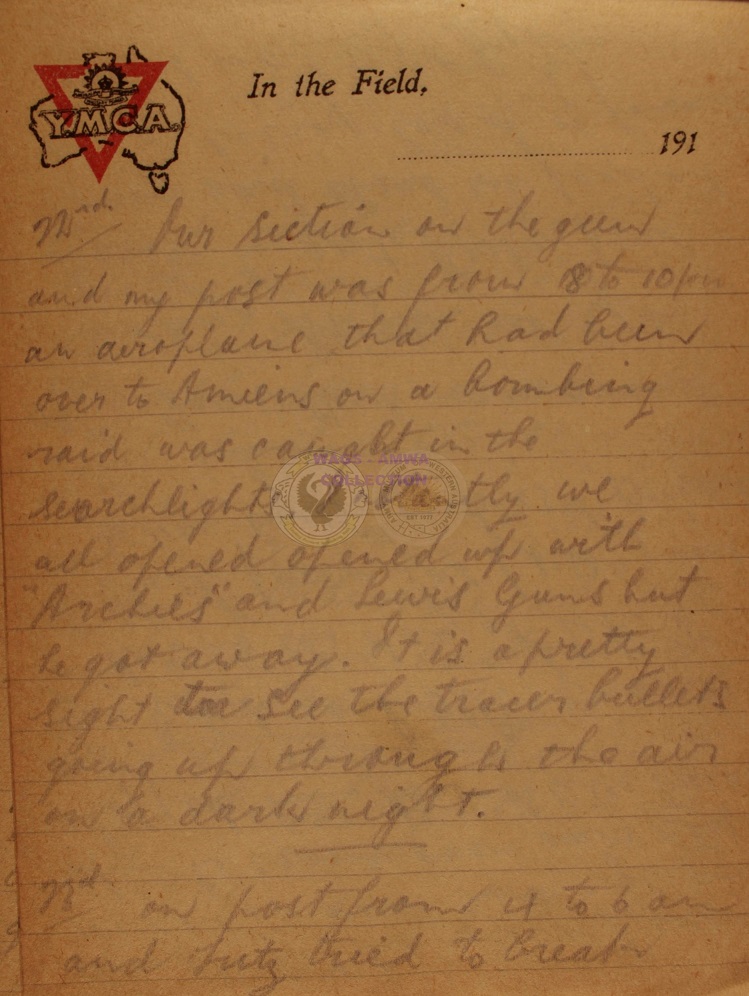 YMCA
In the Field,
191
22nd. Our section on the gun
and my post was from 8 to 10 pm
an aeroplane that had been
over to Amiens on a bombing
raid was caught in the
searchlights Instantly we
all opened opened up with
"Archies" and Lewis Guns but
he got away. It is a pretty
sight to see the tracer bullets
going up through the air
on a dark night.
23rd on post from 4 to 6 am
and Fritz tried to break
WAGS AMWA
COLLECTION